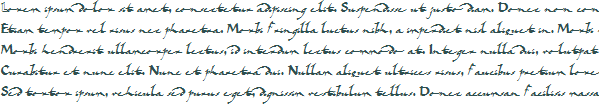 Lorem ipsum dolor sit amet, consectetur adipiscing elit. Suspendisse ut justo diam. Donec non con
Etiam tempor vel risus nec pharetra. Morbi fringilla luctus nibh, a imperdiet nisl aliquet in. Morbi
Morbi hendrerit ullamcorper lectus, id interdum lectus commodo at. Integer nulla dui, volutpat
Curabitur et nunc elit. Nunc et pharetra dui. Nullam aliquet ultrices risus, faucibus pretium lore
Sed tortor ipsum, vehicula sed purus eget, dignissim vestibulum tellus. Donec accumsan facilisis massa